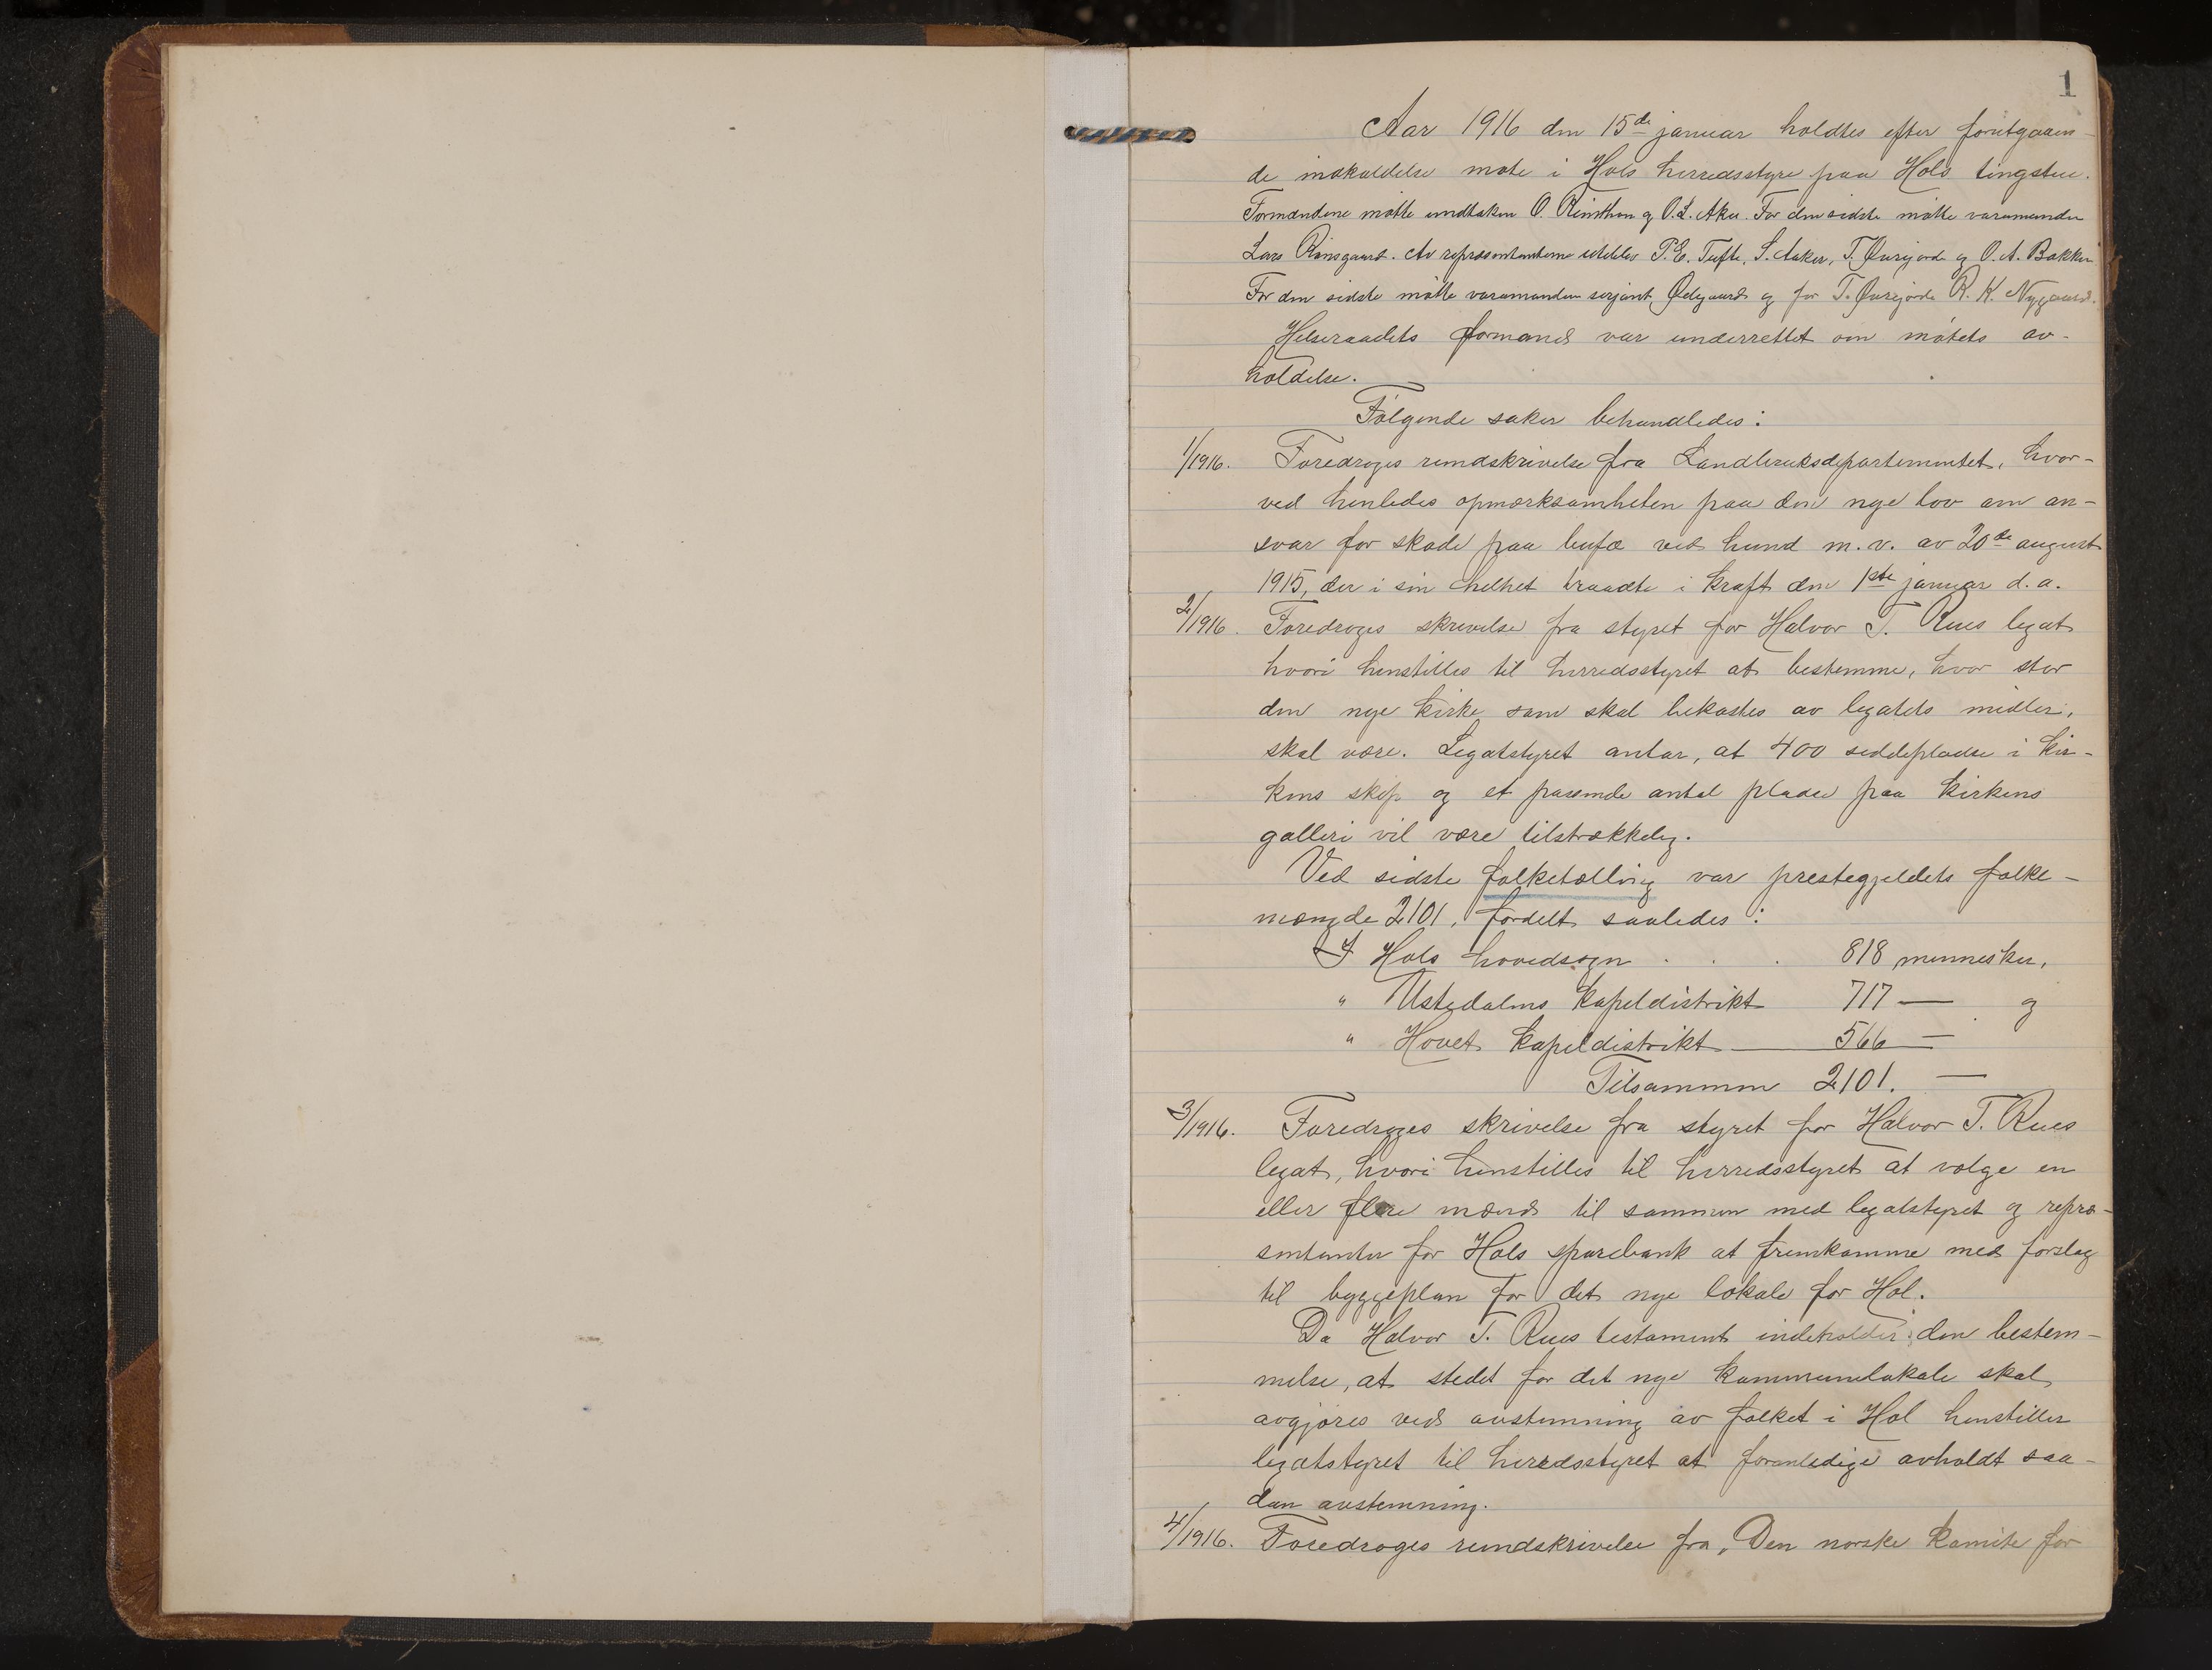 1
Aar 1916 den 15de januar holdtes efter forutgaaen-
de indkaldelse møte i Hols herredsstyre paa Hols tingstue.
Formændene møtte undtaken O. Reinton og O. L. Aker. For den sidste møtte varamanden
Lars Ringaard. Av repræsentanterne uteblev P. E. Tufte, S. Aaker, T. Øvrejorde og O. A. Bakken
For den sidste møtte varamanden serjant Ødegaard og for T. Øvrejorde R. K. Nygaard.
Helseraadets formand var underrettet om møtets av-
holdelse.
Følgende saker behandledes:
1/1916. Foredroges rundskrivelse fra Landbruksdepartementet, hvor-
ved henledes opmerksomheten paa den nye lov om an-
svar for skade paa bufæ ved hund m.v. av 20de august
1915, der i sin helhet traadte i kraft den 1ste januar d.a.
2/1916. Foredroges skrivelse fra styret for Halvor T. Rues legat
hvori henstilles til herredsstyret at bestemme, hvor stor
den nye kirke som skal bekostes av legatets midler,
skal være. Legatstyret antar, at 400 siddepladse i kir-
kens skip og et passende antal pladse paa kirkens
galleri vil være tilstrækkelig.
Ved sidste folketælling var prestegjeldets folke-
mængde 2101, fordelt saaledes:
I Hols hovedsogn . . . 818 mennesker,
" Ustedalens kapeldistrikt 717 — og
" Hovet kapeldistrikt — 566 —
Tilsammen 2101. —
3/1916. Foredroges skrivelse fra styret for Halvor T. Rues
legat, hvori henstilles til herredsstyret at vælge en
eller flere mænd til sammen med legatstyret og repræ-
sentanter for Hols sparebank at fremkomme med forslag
til byggeplan for det nye lokale for Hol.
Da Halvor T. Rues testament indeholder den bestem-
melse, at stedet for det nye kommunelokale skal
avgjøres ved avstemning av folket i Hol henstiller
legatstyret til herredsstyret at foranledige avholdt saa-
dan avstemning.
4/1916. Foredroges rundskrivelse fra „Den norske komite for